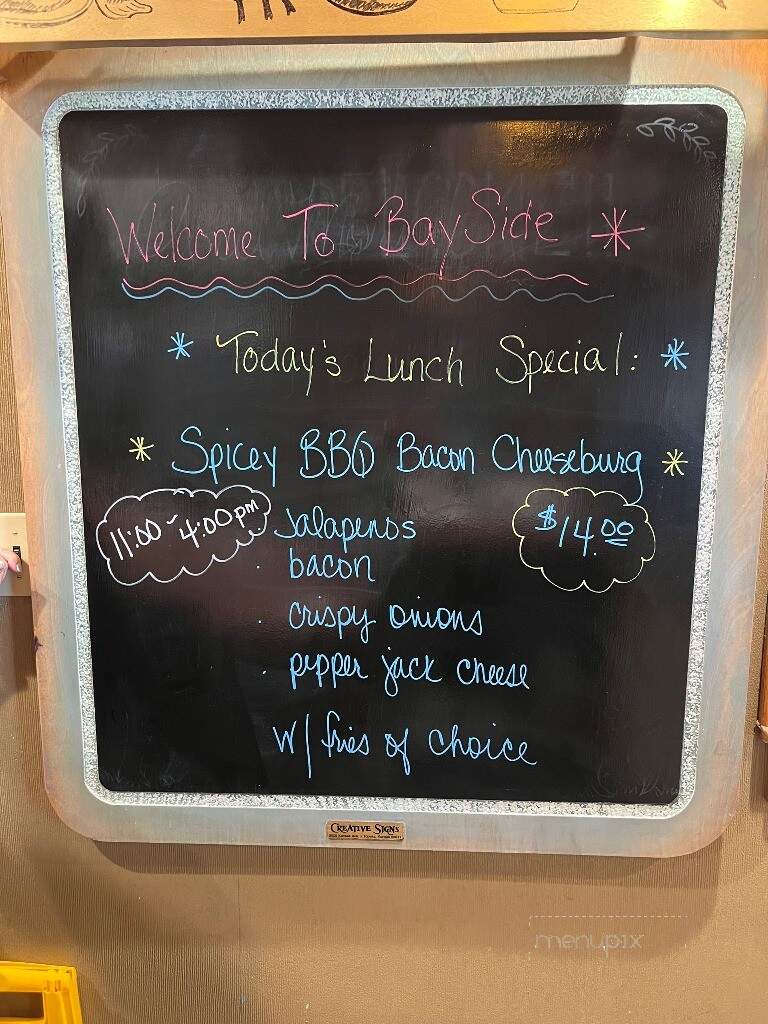 Welcome To BaySide *
* Today's Lunch Special: *
* Spicey BBQ Bacon Cheeseburg *
11:00 - 4:00pm
Jalapenos
$14.00
· bacon
· crispy onions
· pepper jack cheese
W/ fries of choice
CREATIVE SIGNS
menupix